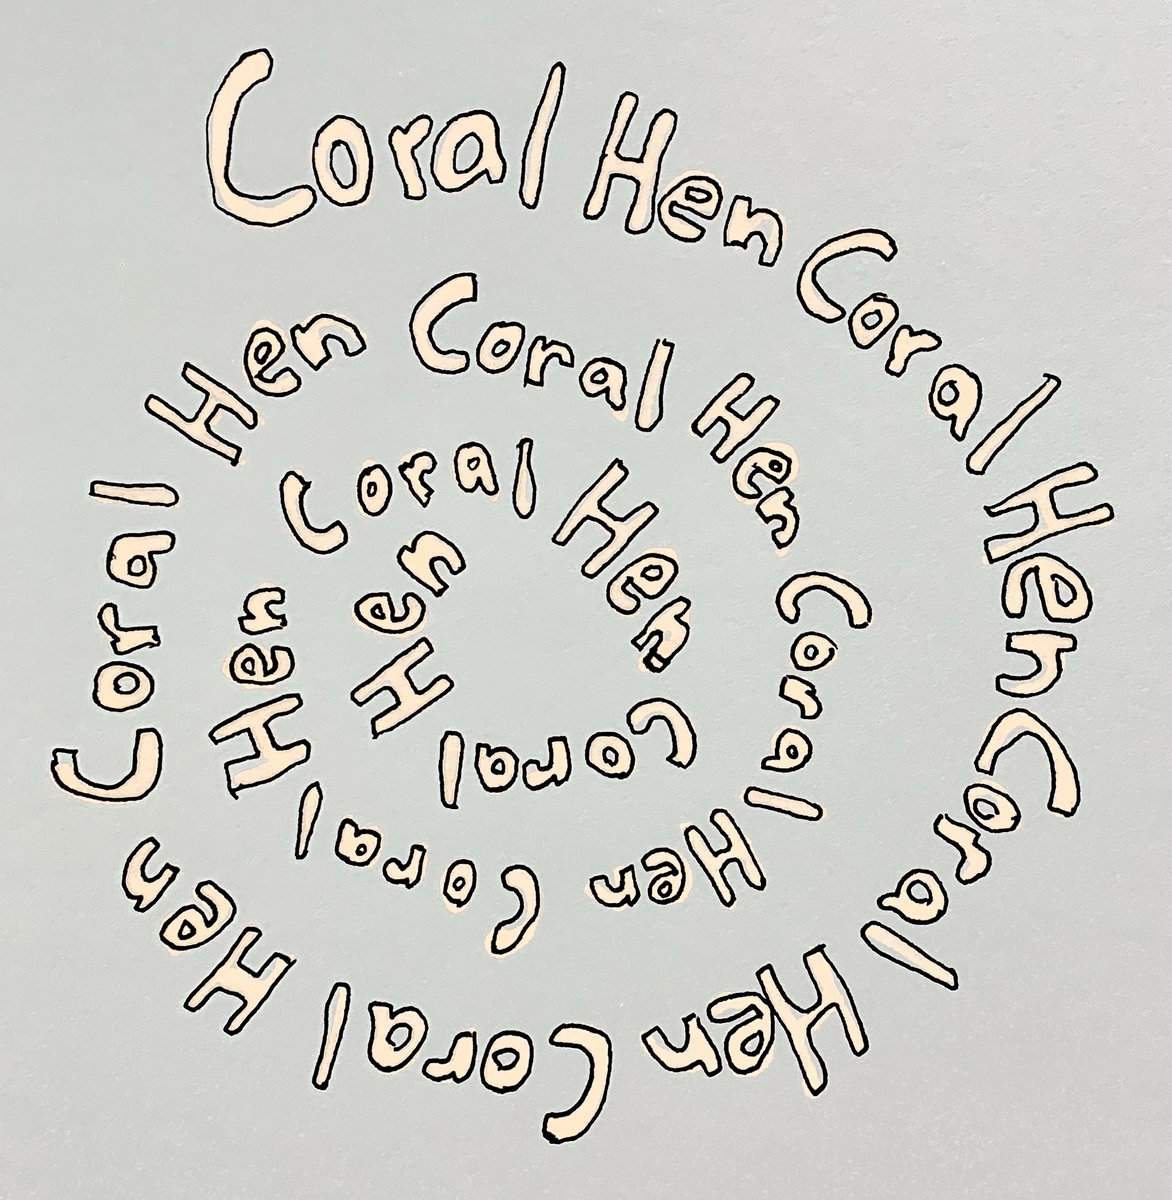 Coral Hen Coral Hen Coral Hen Coral Hen Coral Hen Coral Hen Coral Hen Coral Hen Coral Hen Coral Hen